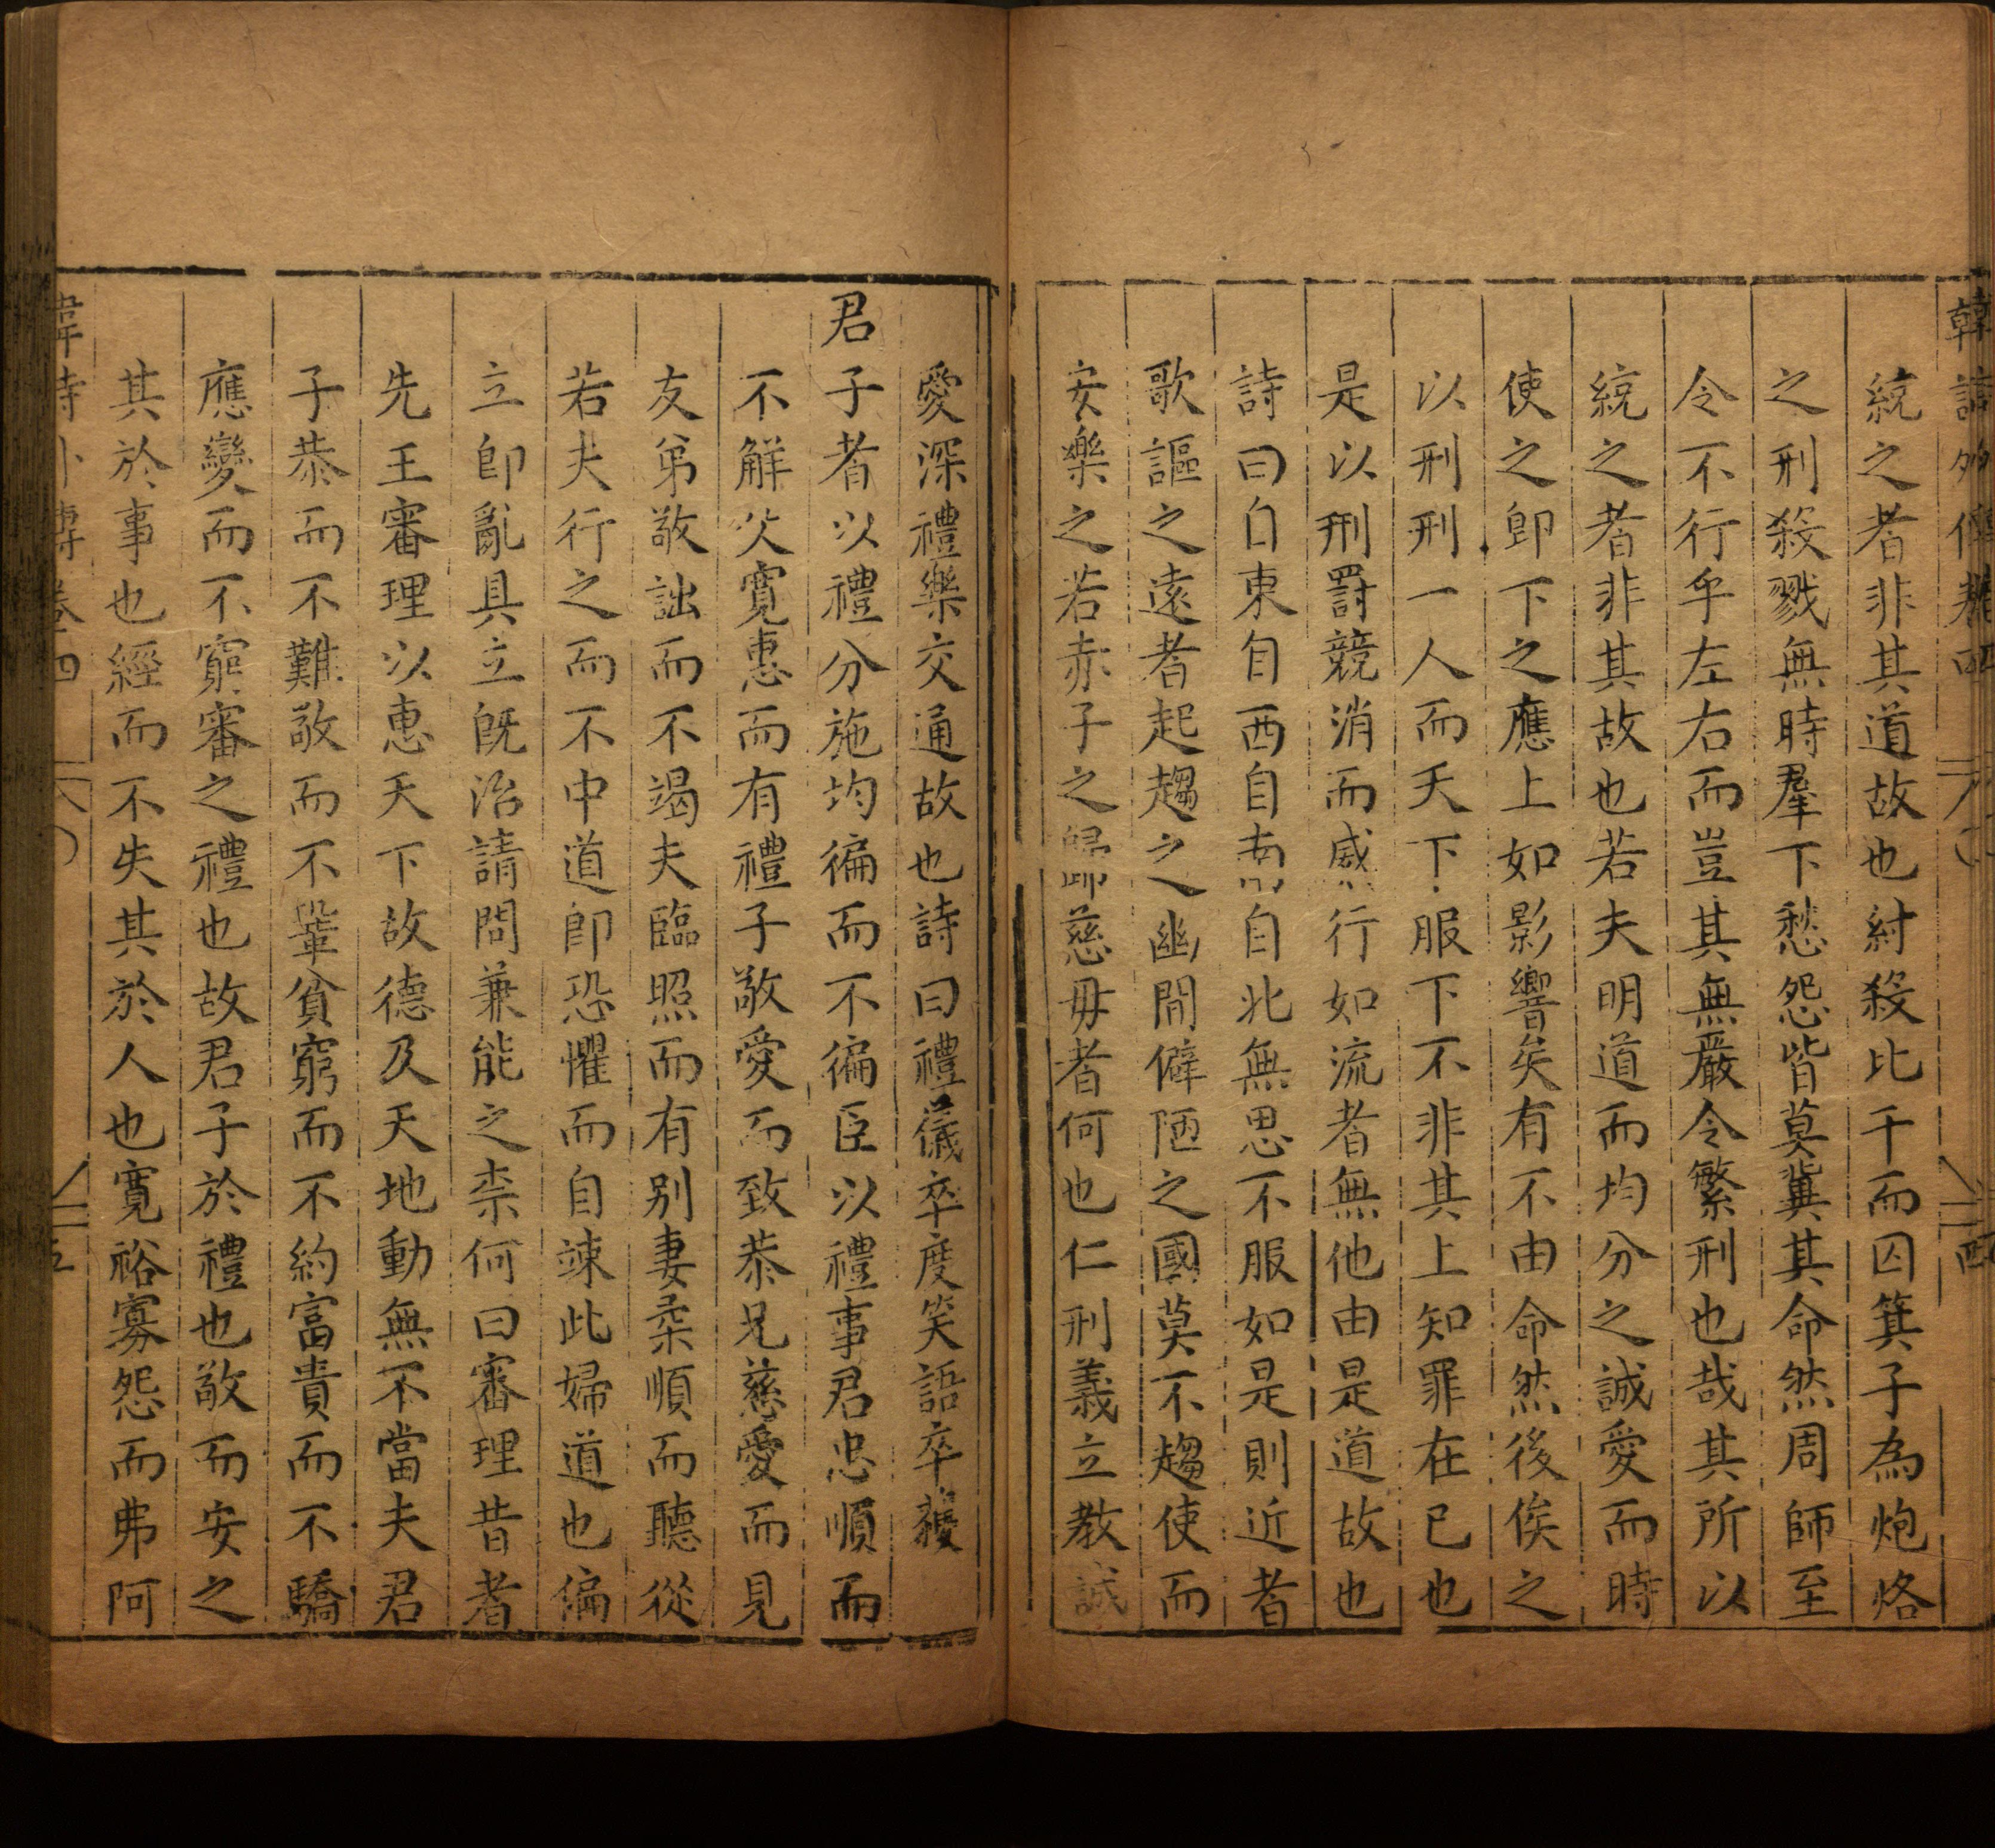 韓詩外傳卷四
四
統之者非其道故也紂殺比干而囚箕子為炮烙
之刑殺戮無時羣下愁怨皆莫冀其命然周師至
令不行乎左右而豈其無嚴令繁刑也哉其所以
統之者非其故也若夫明道而均分之誠愛而時
使之卽下之應上如影響矣有不由命然後俟之
以刑刑一人而天下服下不非其上知罪在已也
是以刑罰競消而威行如流者無他由是道故也
詩曰自東自西自南自北無思不服如是則近者
歌謳之遠者起趨之幽閒僻陋之國莫不趨使而
安樂之若赤子之歸慈毋者何也仁刑義立教誠
愛深禮樂交通故也詩曰禮儀卒度笑語卒獲
君子者以禮分施均徧而不偏臣以禮事君忠順而
不解父寬惠而有禮子敬愛而致恭兄慈愛而見
友弟敬詘而不竭夫臨照而有别妻柔順而聽從
若夫行之而不中道卽恐懼而自竦此婦道也偏
立卽亂具立旣治請問兼能之柰何曰審理昔者
先王審理以惠天下故德及天地動無不當夫君
子恭而不難敬而不鞏貧窮而不約富貴而不驕
應變而不窮審之禮也故君子於禮也敬而安之
其於事也經而不失其於人也寬裕寡怨而弗阿
韓詩外傳卷四
五